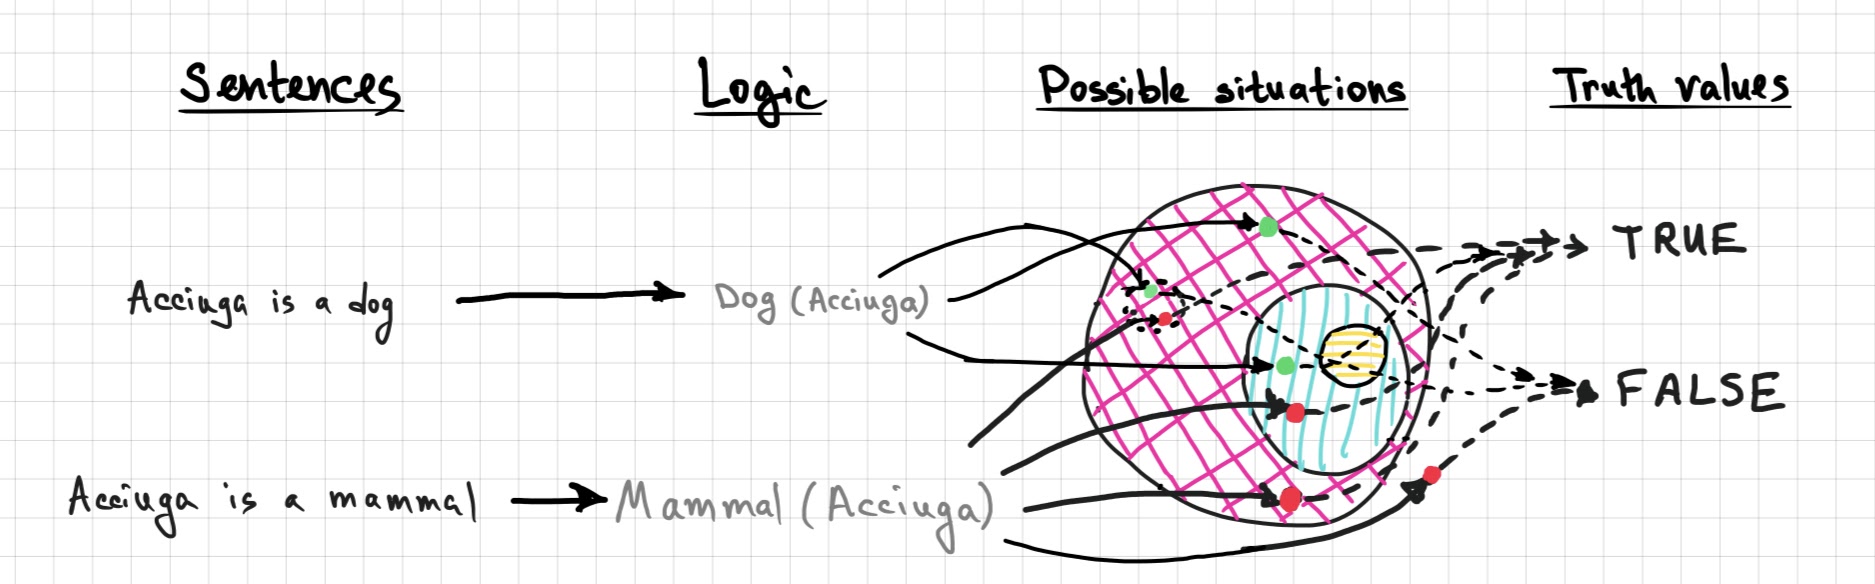 Sentences Logic Possible situations Truth values
TRUE
Acciuga is a dog Dog (Acciuga)
FALSE
Acciuga is a mammal Mammal (Acciuga)